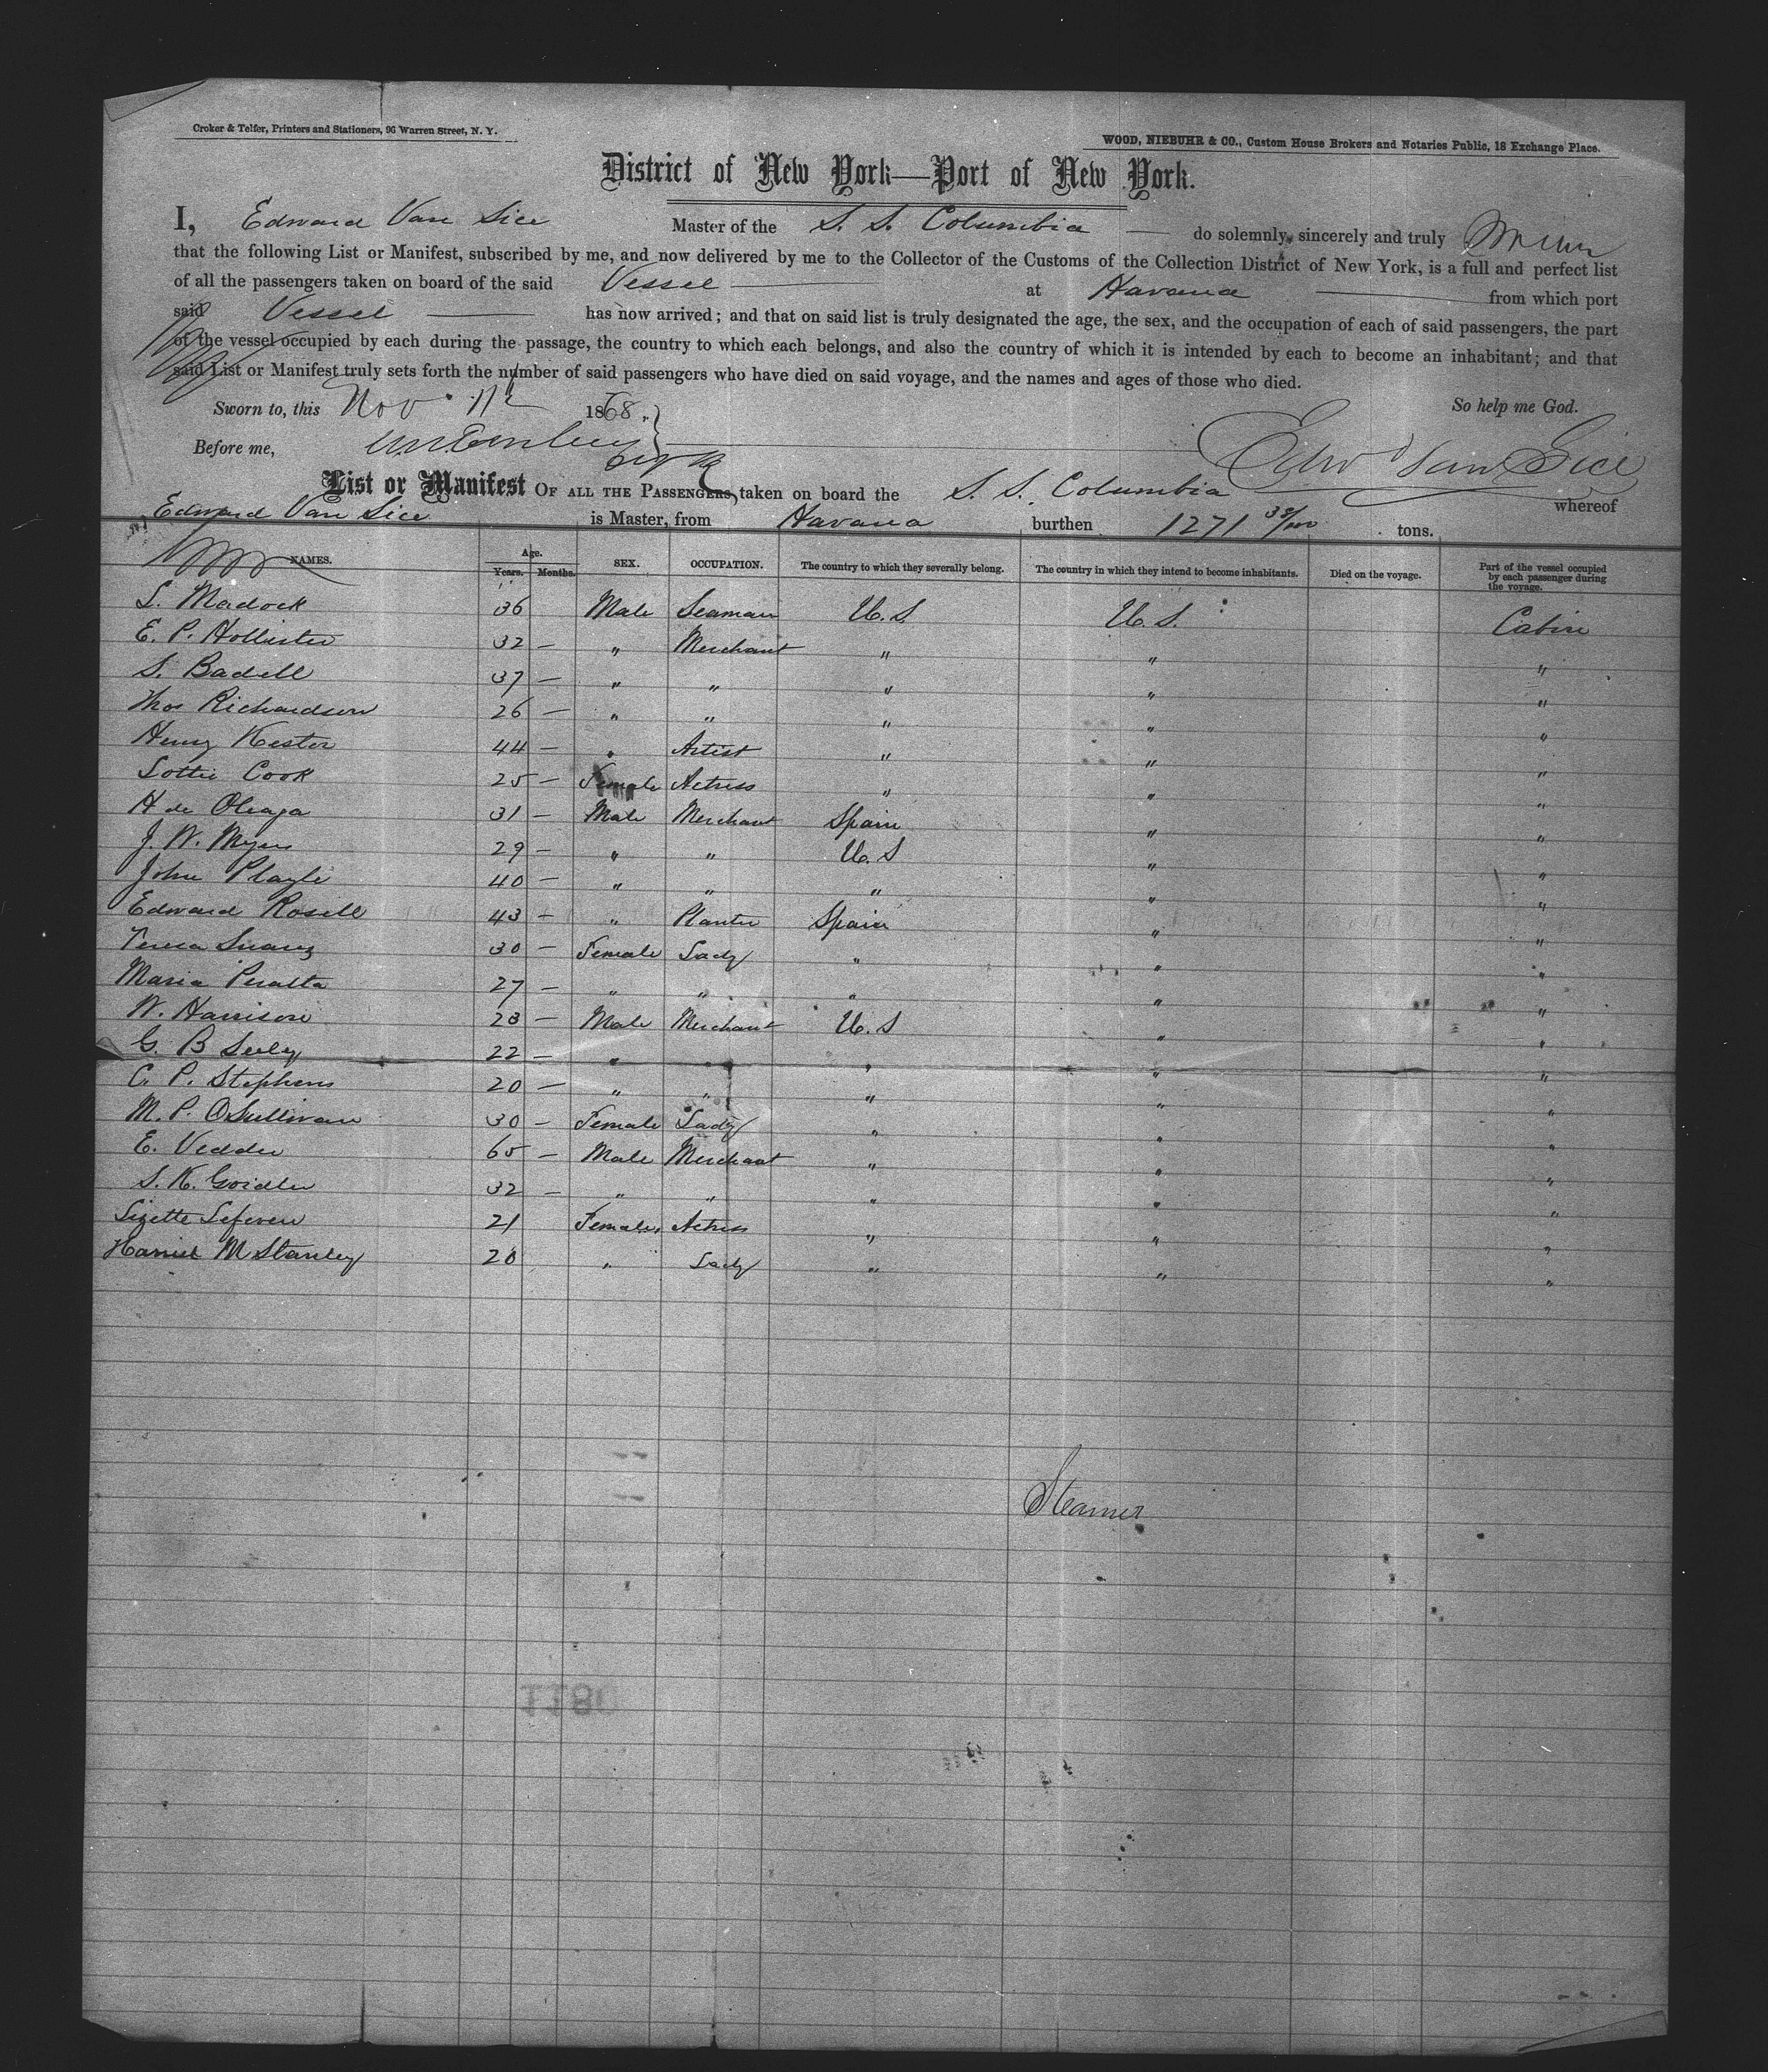 Croker & Telfer, Printers and Stationers, 96 Warren Street, N. Y.
WOOD, NIEBUHR & CO., Custom House Brokers and Notaries Public, 18 Exchange Place.
District of New York—Port of New York.
I, Edward Van Sice Master of the S. S. Columbia do solemnly, sincerely and truly
that the following List or Manifest, subscribed by me, and now delivered by me to the Collector of the Customs of the Collection District of New York, is a full and perfect list
of all the passengers taken on board of the said Vessel at Havana from which port
said Vessel has now arrived; and that on said list is truly designated the age, the sex, and the occupation of each of said passengers, the part
of the vessel occupied by each during the passage, the country to which each belongs, and also the country of which it is intended by each to become an inhabitant; and that
said List or Manifest truly sets forth the number of said passengers who have died on said voyage, and the names and ages of those who died.
Sworn to, this Nov. 1868. So help me God.
Before me, Edwd Van Sice
List or Manifest OF ALL THE PASSENGERS, taken on board the S. S. Columbia whereof
Edward Van Sice is Master, from Havana burthen 1271 38/100 tons.
NAMES. Age. Years. Months. SEX. OCCUPATION. The country to which they severally belong. The country in which they intend to become inhabitants. Died on the voyage. Part of the vessel occupied by each passenger during the voyage.
S. Madock 36 Male Seaman U. S. U. S. Cabin
E. P. Hollister 32 — " Merchant " " "
S. Badell 37 — " " " " "
Thos Richardson 26 — " " " " "
Henry Kester 44 — " Artist " " "
Lottie Cook 25 — Female Actress " " "
H de Oleaga 31 — Male Merchant Spain " "
J. W. Myers 29 — " " U. S " "
John Playle 40 — " " " " "
Edward Rosell 43 — " Planter Spain " "
Teresa Suarez 30 — Female Lady " " "
Maria Peralta 27 — " " " " "
W. Harrison 28 — Male Merchant U. S " "
G. B Seeley 22 — " " " " "
C. P. Stephens 20 — " " " " "
M. P. OSullivan 30 — Female Lady " " "
E. Vedder 65 — Male Merchant " " "
S. K. Goidler 32 — " " " " "
Lizette Lefevere 21 Female Actress " " "
M Stanley 20 " Lady " " "
Steamer
1180